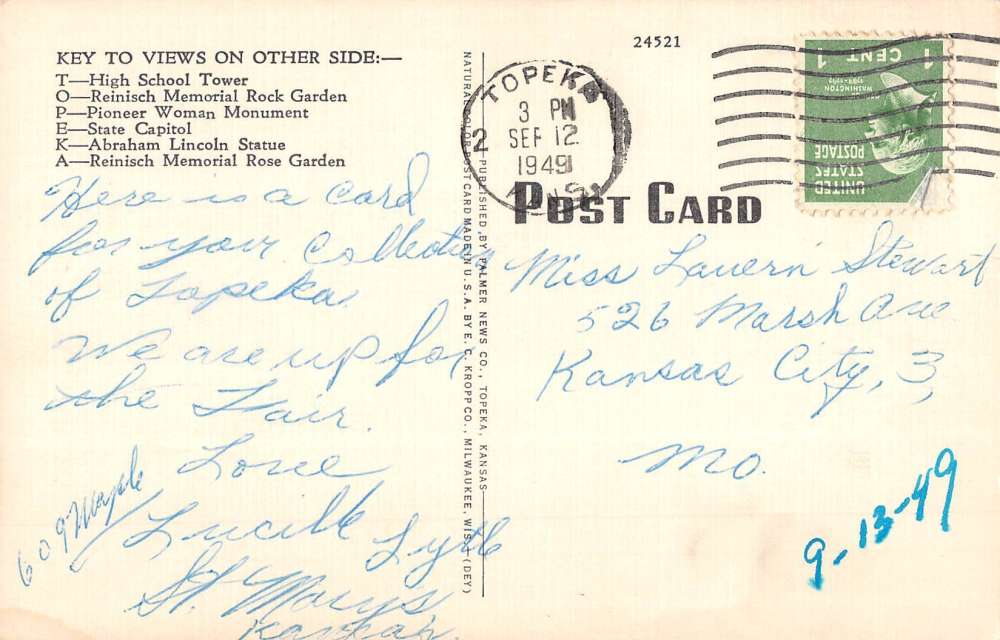 KEY TO VIEWS ON OTHER SIDE:—
T—High School Tower
O—Reinisch Memorial Rock Garden
P—Pioneer Woman Monument
E—State Capitol
K—Abraham Lincoln Statue
A—Reinisch Memorial Rose Garden
Here is a card
for your Collection
of Topeka.
We are up for
the Fair.
Love
Lucille Lytle
St. Marys
Kansas.
609 Maple
NATURAL COLOR POST CARD MADE IN U.S.A. BY E. C. KROPP CO., MILWAUKEE, WIS. (DEY)
—PUBLISHED BY PALMER NEWS CO., TOPEKA, KANSAS—
24521
TOPEKA
3 PM
SEP 12
1949
KANS.
2
1 CENT 1
WASHINGTON
1789-1797
UNITED
STATES
POSTAGE
POST CARD
Miss Lavern Stewart
526 Marsh Ave
Kansas City, 3,
Mo.
9-13-49